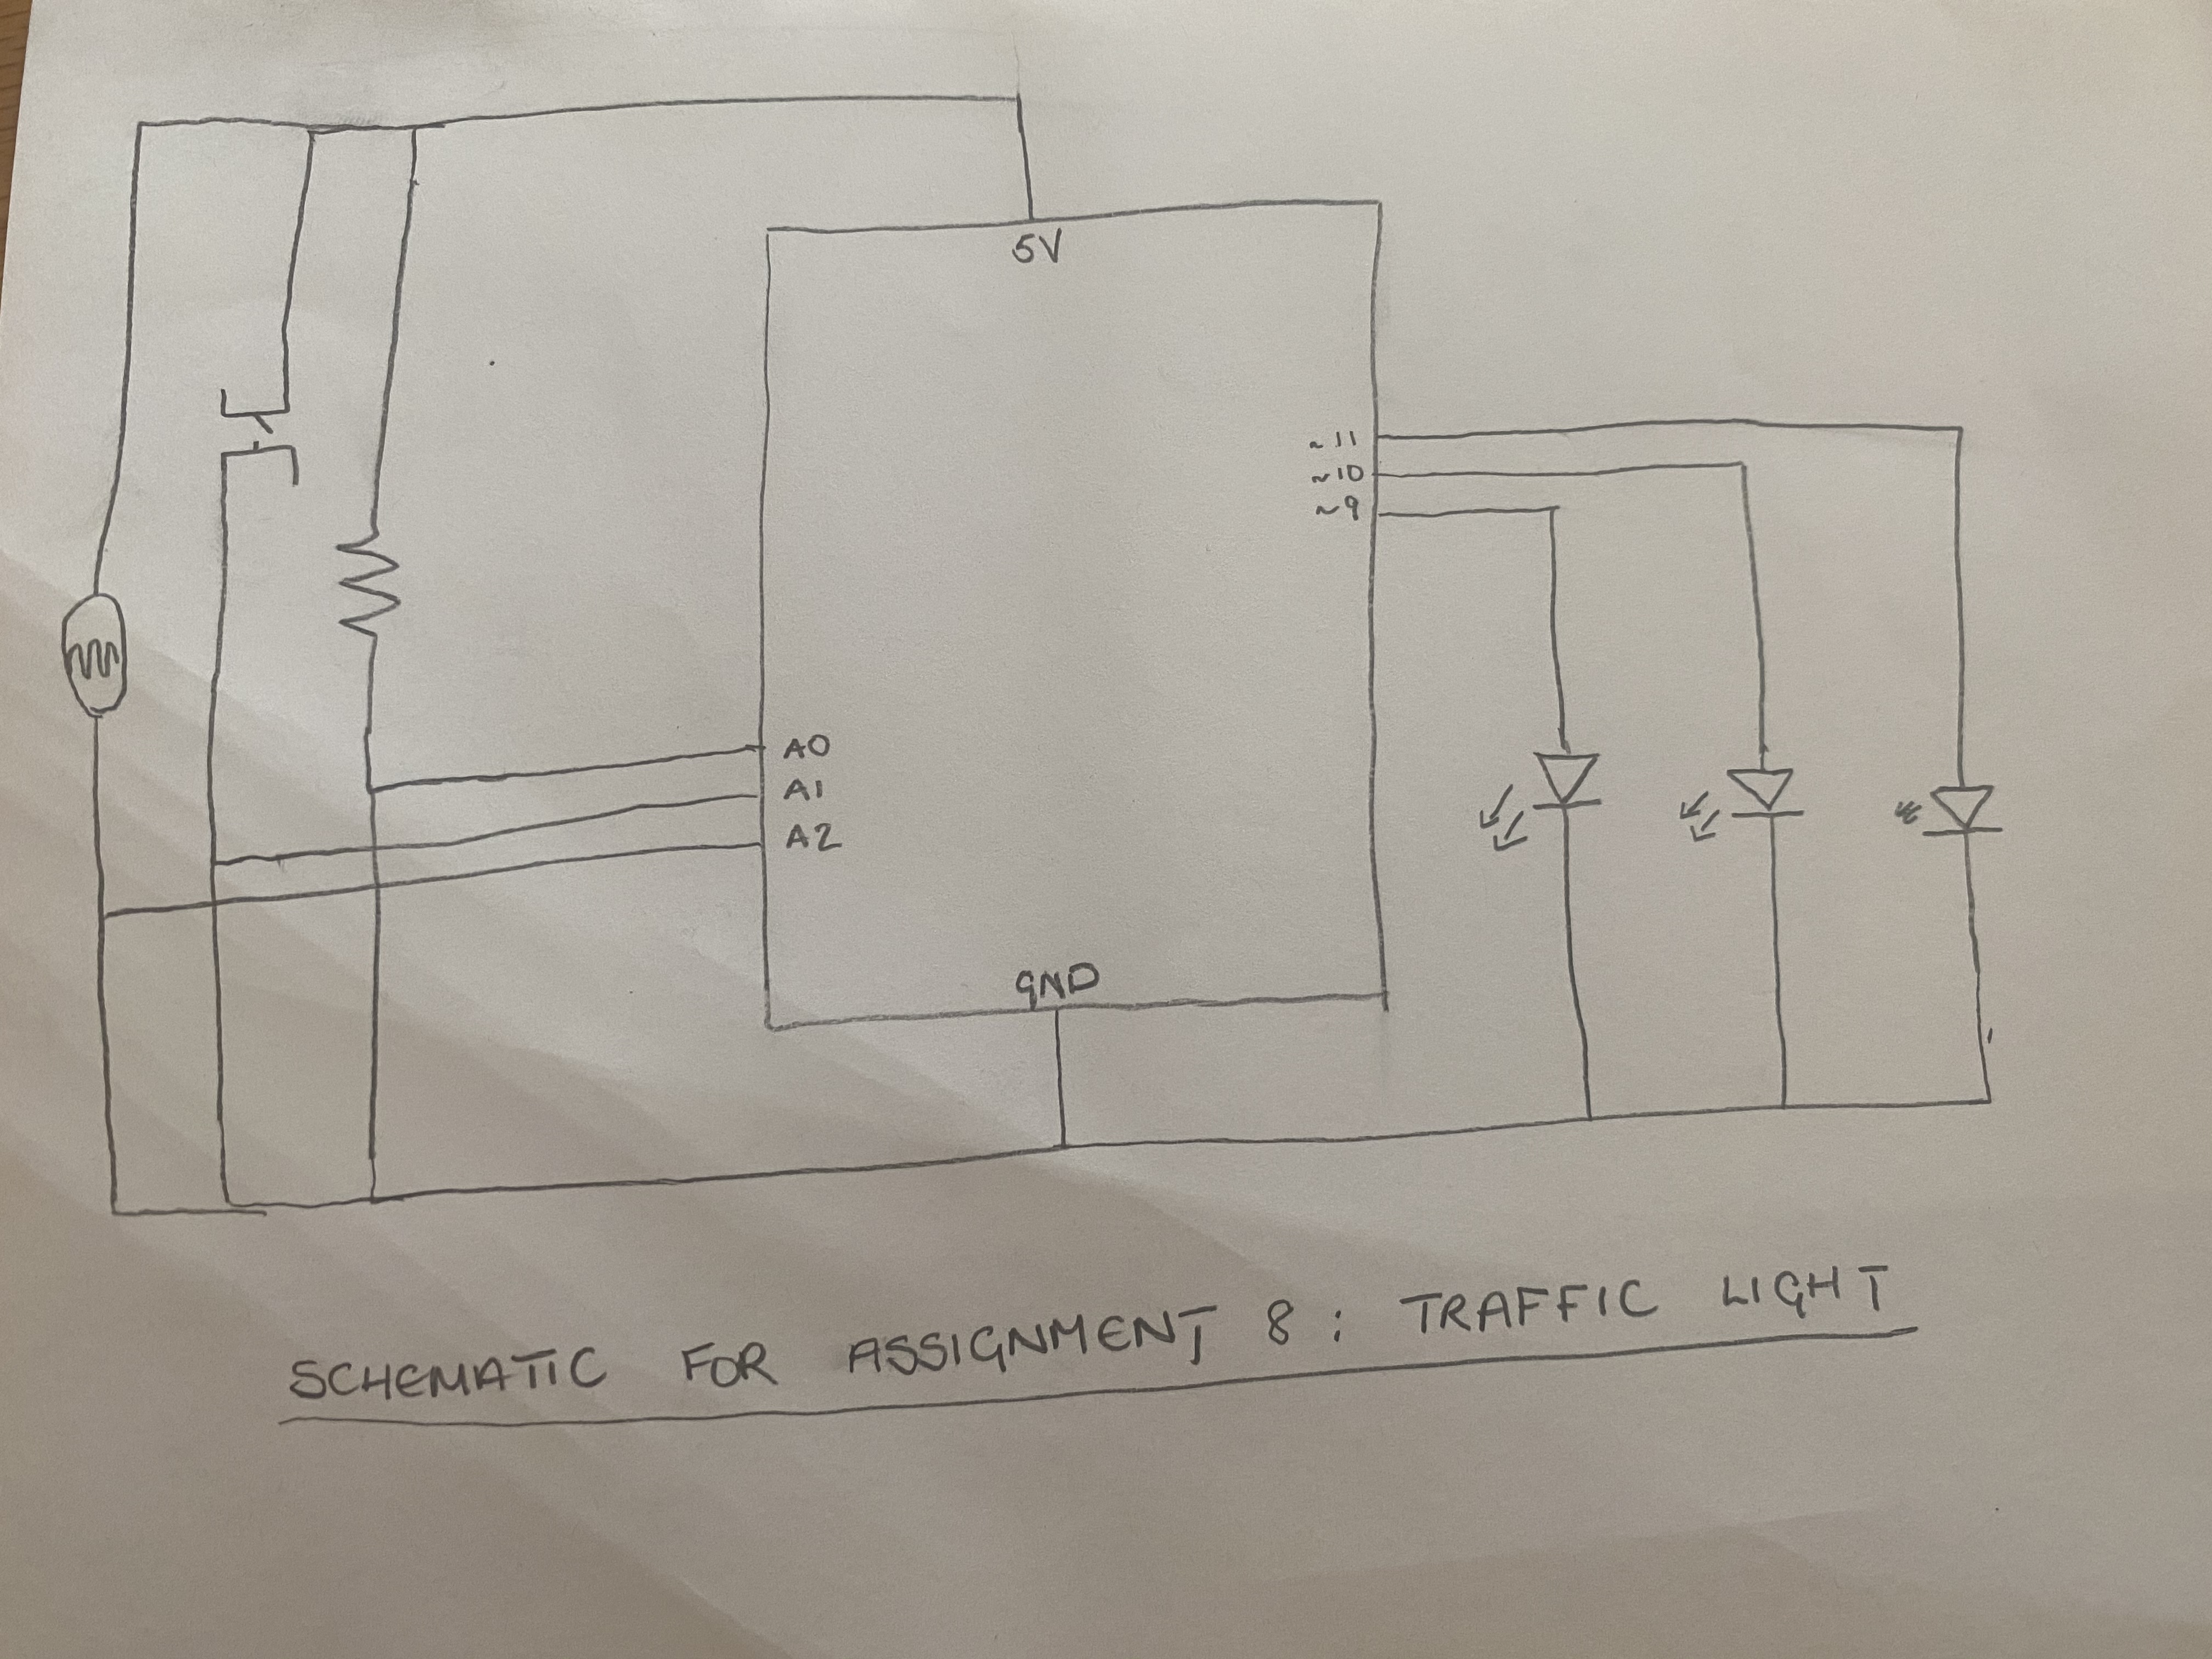 5V
~11
~10
~9
A0
A1
A2
GND
SCHEMATIC FOR ASSIGNMENT 8 : TRAFFIC LIGHT